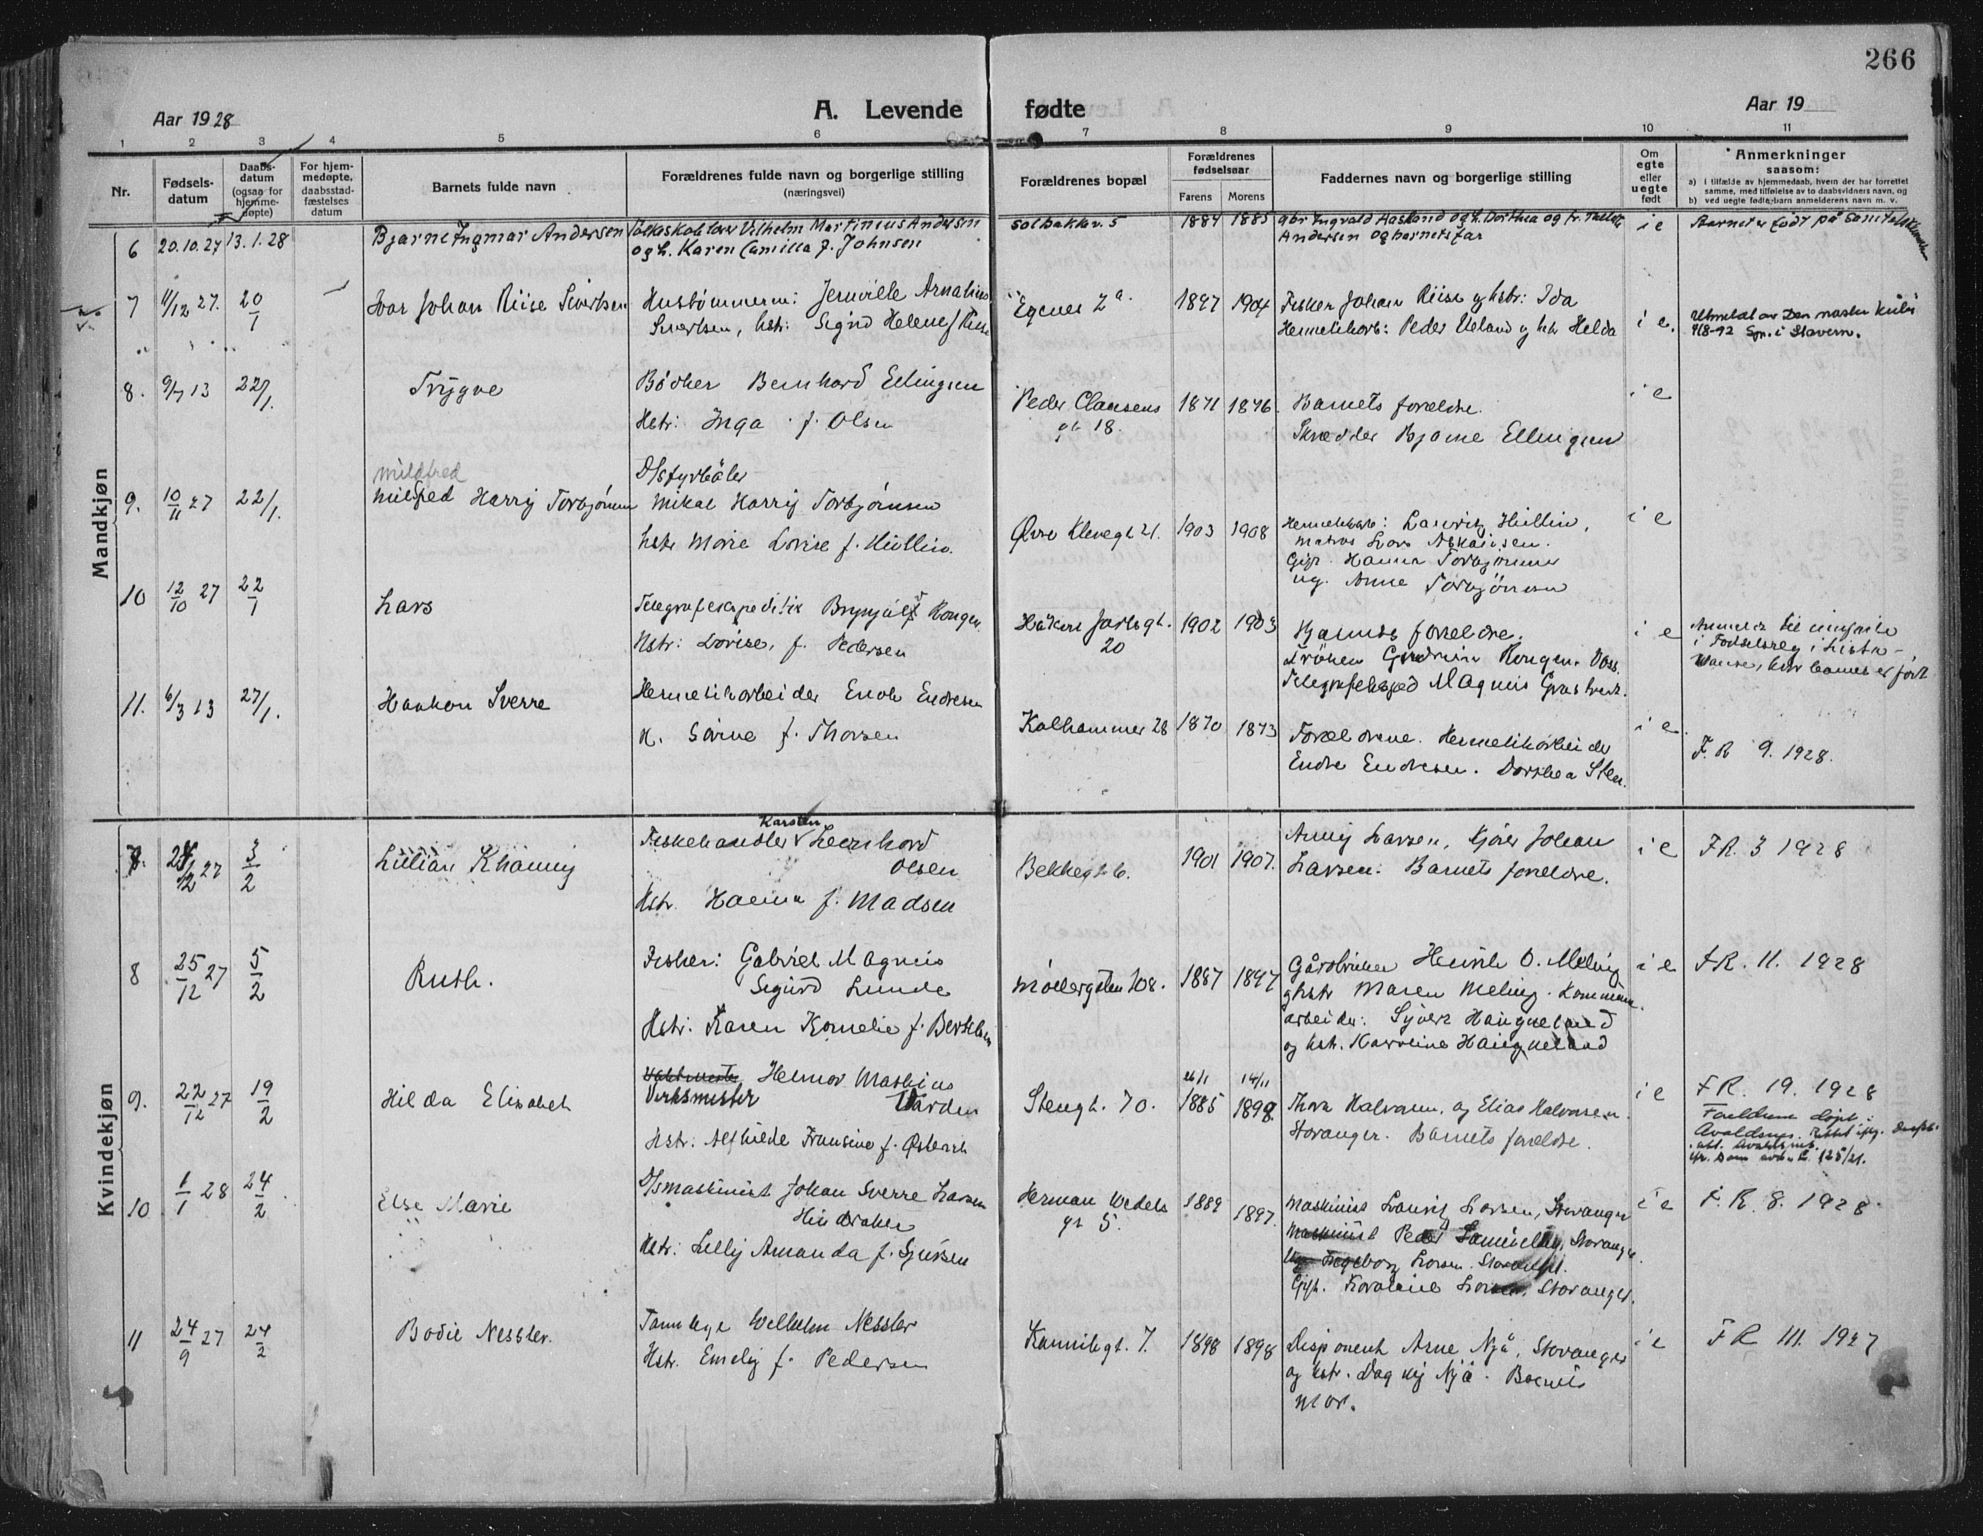 266
Aar 1928
A. Levende fødte
Aar 19
1 2 3 4 5 6 7 8 9 10 11
Nr.
Fødsels-
datum
Daabs-
datum
(ogsaa for
hjemme-
døpte)
For hjem-
medøpte,
daabsstad-
fæstelses
datum
Barnets fulde navn
Forældrenes fulde navn og borgerlige stilling
(næringsvei)
Forældrenes bopæl
Forældrenes
fødselsaar
Farens Morens
Faddernes navn og borgerlige stilling
Om
egte
eller
uegte
født
Anmerkninger
saasom:
a) i tilfælde av hjemmedaab, hvem der har forrettet
samme, med tilføielse av to daabsvidners navn, og
b) ved uegte fødte barn anmelderens navn m. v.
Mandkjøn
6 20.10.27 13.1.28 Bjarne Ingmar Andersen
Vilhelm Martinius Andersen
og h. Karen Camilla f. Johnsen
Solbakkv. 5 1884 1885
Ingvald Aasland og h. Dorthea og fr.
Andersen og barnets far
i e
Barnet er født på
7 11/12 27. 20/1 Ivar Johan Riise Sivertsen
Jernville Arnatius
Sivertsen, hstr: Sigrid Helene f Riise
Egenes 2a. 1897 1904
Fisker Johan Riise og hstr: Ida
Hermetikarb: Peder Ueland og hstr Helda
i e.
Utmeldt av Den norske kirke
4/8-42 Spr. i Stavern.
8. 9/7 13 22/1. Trygve
Bødker Bernhard Ellingsen
Hstr: Inga f. Olsen
Peder Clausens
gt 18.
1871 1876.
Barnets forældre.
Skredder Bjarne Ellingsen
i e
9. 10/11 27 22/1.
Mildfred
Milfred Harry Torbjørnsen
D/S fyrbøter
Mikal Harry Torbjørnsen
hstr Marie Lovise f. Hüllin.
Øvre Klevegt 21. 1903 1908
Hermetikarb: Lauritz Hüllin,
Matros Lars
Gift. Hanna Torbjørnsen
ug. Anne Torbjørnsen
i e
10 12/10 27 22/1 Lars
Telegrafekspeditør Brynjulf Rongen
Hstr: Lovise, f. Pedersen
Håkon Jarls gt.
20
1902 1903
Barnets foreldre.
Frøken Gudrun Rongen, Voss.
Telegrafeksped Magnus
i e
i Fødselsreg i Lista
hvor barnet er født
11. 6/3 13 27/1. Haakon Sverre
Hermetikarbeider Enok Endresen
H. Sørine f. Thorsen
Kalhammer 28 1870 1873
Foreldrene. Hermetikarbeider
Endre Endresen. Dorthea Sten.
i e.
F. R 9. 1928.
Kvindekjøn
7. 12 27 3/2 Lillian Khanny
Karsten
Fiskehandler Leonhard
Olsen
Hstr. Hanna f. Madsen
Bekkegt. 6. 1901 1907.
Anny Larsen, Kjører Johan
Larsen. Barnets foreldre.
i e
F.R. 3 1928
8 25/12 27 5/2 Ruth.
Fisker: Gabriel Magnus
Sigurd Lunde
Hstr. Karen Kornelie f. Bertelsen
Møllergaten 108. 1887 1897
Gårdbruker Henrik O. Meling
og hstr Maren Meling. Kommune
arbeider: Syvert Haugneland
og hstr. Karoline Haugneland
i e
F.R. 11. 1928
9. 22/12 27 19/2 Hilda Elisabet
Helmer Mathias
Verksmester Varden
Hstr: Alfhilde Fransine f. Østensti
Stengt. 70.
26/11 14/11
1885 1898.
Thora Halvorsen, og Elias Halvorsen.
Stavanger. Barnets foreldre.
i e
F.R. 19. 1928
Avaldsnes.
10 1/1 28 24/2 Else Marie
D/S maskinist Johan Sverre Larsen
Hinderaker
Hstr: Lilly Amanda f. Sjursen
Herman Wedels
gt 5.
1889 1897.
Maskinist Lauritz Larsen, Stavanger
Maskinist Peder Samuelsen, Stavanger.
Ug. Ingeborg Larsen. Stavanger.
Gift. Karoline Larsen, Stavanger.
i e
F. R. 8. 1928
11 24/9 27 24/2 Bodil Nessler.
Tannlege Wilhelm Nessler
Hstr. Emely f. Pedersen
Kannikgt. 7. 1898 1898
Disponent Arne Njå, Stavanger
og hstr. Dagny Njå. Barnets
mor.
i e
F R 111. 1927